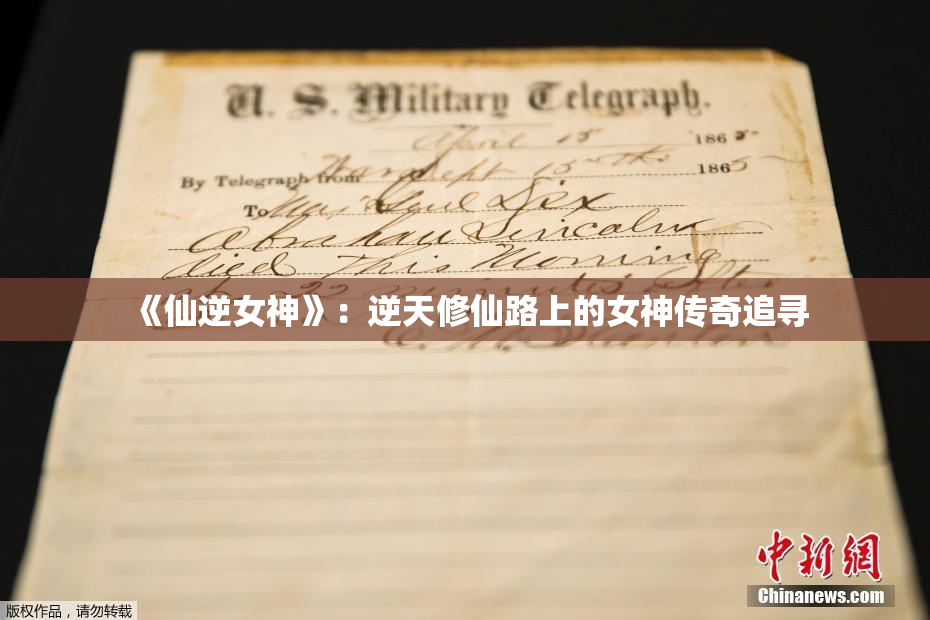 U. S. Military Telegraph.
April 15 1865
By Telegraph from War Dept 15th 1865
To Maj Genl Dix
Abraham Lincoln
died This Morning
at 22 minutes after
《仙逆女神》：逆天修仙路上的女神传奇追寻
E. M. Stanton
中新網
Chinanews.com
版权作品，请勿转载